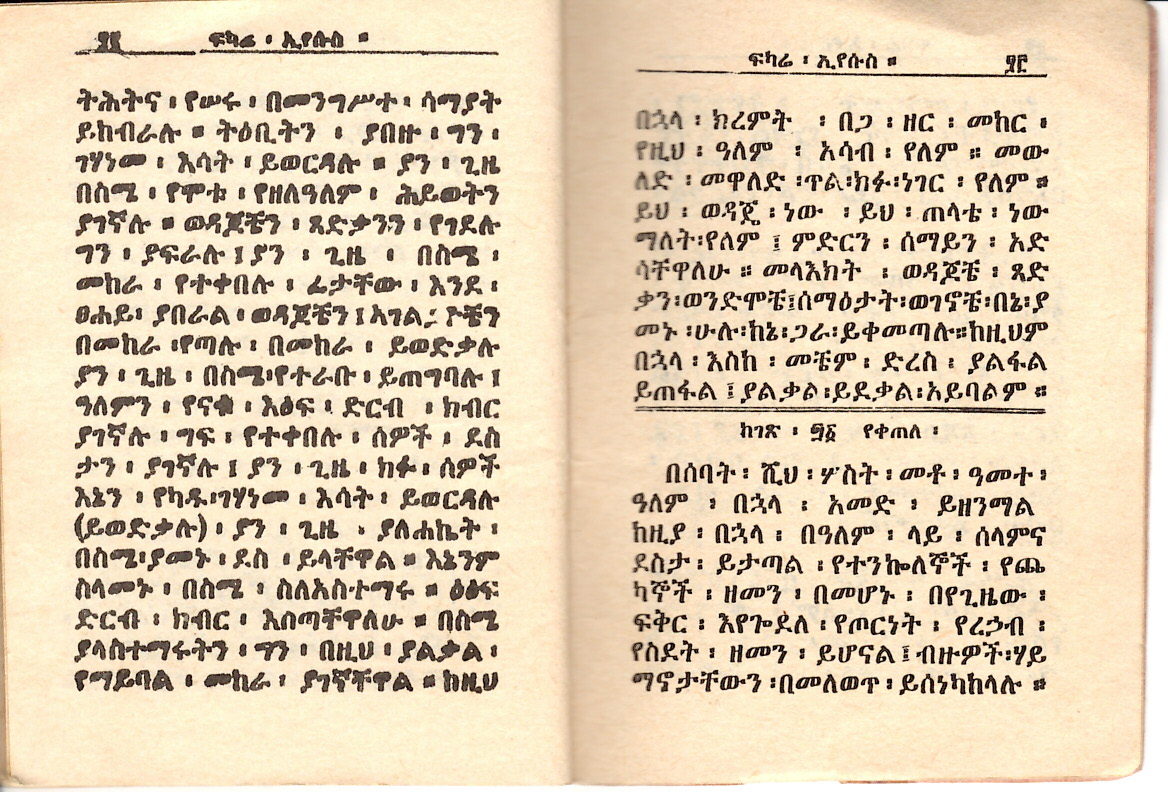 ፍካሬ ፡ ኢየሱስ ።
ትሕትና ፡ የሠሩ ፡ በመንግሥተ ፡ ሳማያት
ይከብራሉ ። ትዕቢትን ፡ ያበዙ ፡ ግን ፡
ገሃነመ ፡ እሳት ፡ ይወርዳሉ ። ያን ፡ ጊዜ
በስሜ ፡ የሞቱ ፡ የዘለዓለም ፡ ሕይወትን
ያገኛሉ ። ወዳጆቼን ፡ ጻድቃንን ፡ የገደሉ
ግን ፡ ያፍራሉ ፤ ያን ፡ ጊዜ ፡ በስሜ ፡
መከራ ፡ የተቀበሉ ፡ ፊታቸው ፡ እንደ ፡
ፀሐይ ፡ ያበራል ፡ ወዳጆቼን ፤ አገልጋዮቼን
በመከራ ፡ የጣሉ ፡ በመከራ ፡ ይወድቃሉ
ያን ፡ ጊዜ ፡ በስሜ ፡ የተራቡ ፡ ይጠግባሉ ፤
ዓለምን ፡ የናቁ ፡ እፅፍ ፡ ድርብ ፡ ክብር
ያገኛሉ ፡ ግፍ ፡ የተቀበሉ ፡ ሰዎች ፡ ደስ
ታን ፡ ያገኛሉ ፤ ያን ፡ ጊዜ ፡ ክፉ ፡ ሰዎች
እኔን ፡ የካዱ ፡ ገሃነመ ፡ እሳት ፡ ይወርዳሉ
(ይወድቃሉ) ፡ ያን ፡ ጊዜ ፡ ያለሐኬት ፡
በስሜ ፡ ያመኑ ፡ ደስ ፡ ይላቸዋል ። እኔንም
ስላመኑ ፡ በስሜ ፡ ስለአስተማሩ ። ዕፅፍ
ድርብ ፡ ክብር ፡ እሰጣቸዋለሁ ። በስሜ
ያላስተማሩትን ፡ ግን ፡ በዚህ ፡ ያልቃል ፡
የማይባል ፡ መከራ ፡ ያገኛቸዋል ። ከዚህ
ፍካሬ ፡ ኢየሱስ ። ፶፫
በኋላ ፡ ክረምት ፡ በጋ ፡ ዘር ፡ መከር ፡
የዚህ ፡ ዓለም ፡ አሳብ ፡ የለም ። መው
ለድ ፡ መዋለድ ፡ ጥል ፡ ክፉ ፡ ነገር ፡ የለም ።
ይህ ፡ ወዳጄ ፡ ነው ፡ ይህ ፡ ጠላቴ ፡ ነው
ማለት ፡ የለም ፤ ምድርን ፡ ሰማይን ፡ አድ
ሳቸዋለሁ ። መላእክት ፡ ወዳጆቼ ፡ ጻድ
ቃን ፡ ወንድሞቼ ፤ ሰማዕታት ፡ ወገኖቼ ፡ በኔ ፡ ያ
መኑ ፡ ሁሉ ፡ ከኔ ፡ ጋራ ፡ ይቀመጣሉ ። ከዚህም
በኋላ ፡ እስከ ፡ መቼም ፡ ድረስ ፡ ያልፋል
ይጠፋል ፤ ያልቃል ፡ ይደቃል ፡ አይባልም ።
ከገጽ ፡ ፵፩ የቀጠለ ፡
በሰባት ፡ ሺህ ፡ ሦስት ፡ መቶ ፡ ዓመተ ፡
ዓለም ፡ በኋላ ፡ አመድ ፡ ይዘንማል
ከዚያ ፡ በኋላ ፡ በዓለም ፡ ላይ ፡ ሰላምና
ደስታ ፡ ይታጣል ፡ የተንኰለኞች ፡ የጨ
ካኞች ፡ ዘመን ፡ በመሆኑ ፡ በየጊዜው ፡
ፍቅር ፡ እየጐደለ ፡ የጦርነት ፡ የረኃብ ፡
የስደት ፡ ዘመን ፡ ይሆናል ፤ ብዙዎች ፡ ሃይ
ማኖታቸውን ፡ በመለወጥ ፡ ይሰነካከላሉ ።